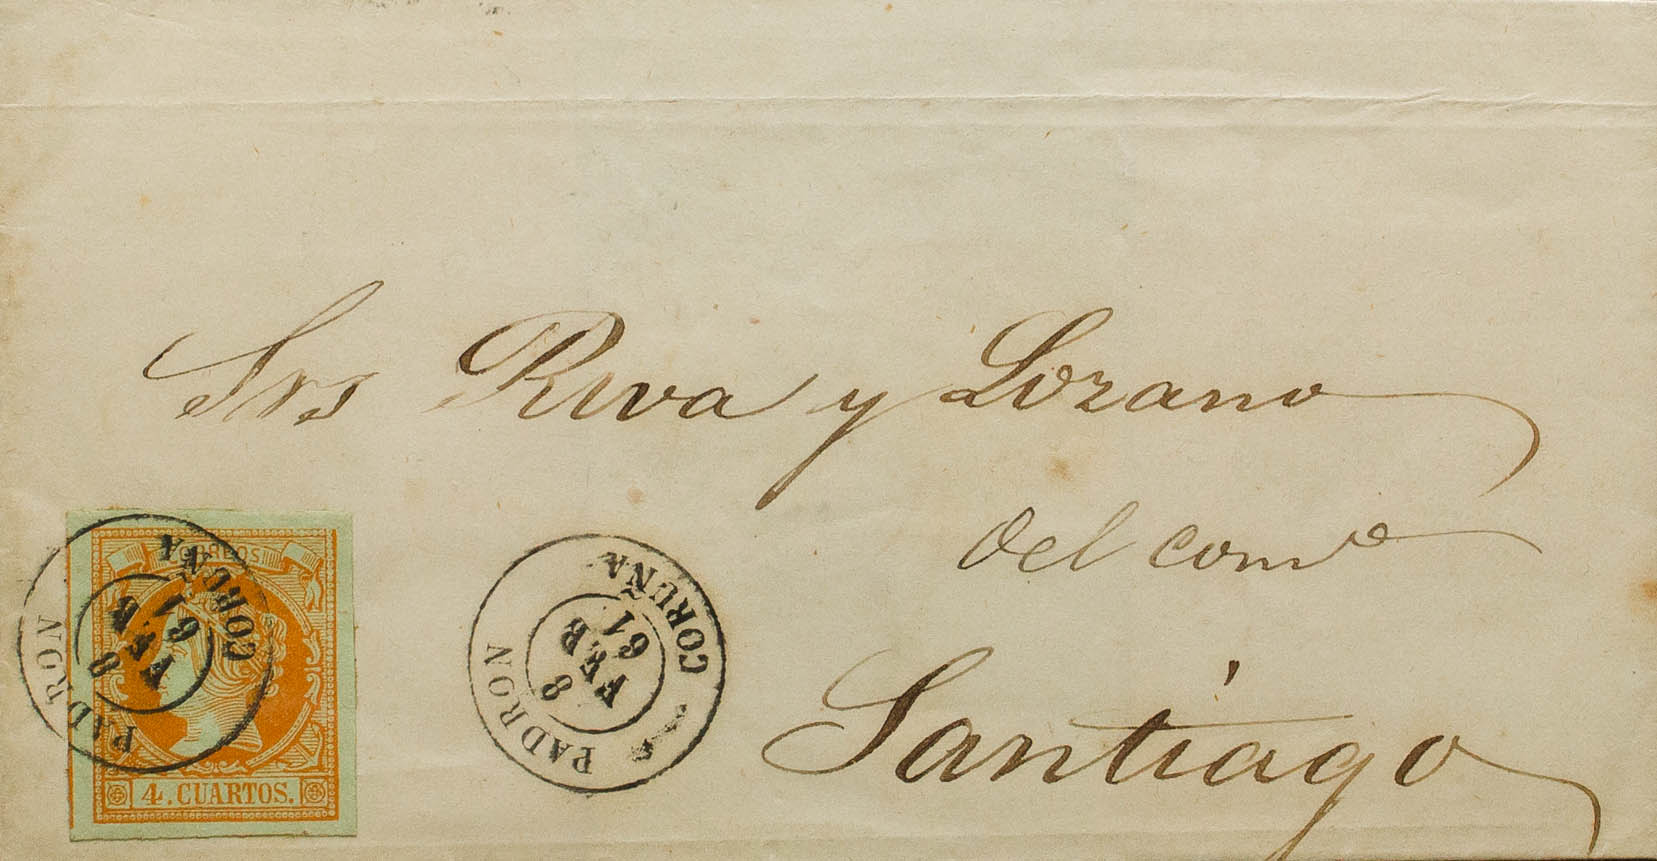 Srs Riva y Lozano
del comº
Santiago
CORREOS
4. CUARTOS.
PADRON
8
FEB
61
CORUÑA
PADRON
8
FEB
61
CORUÑA